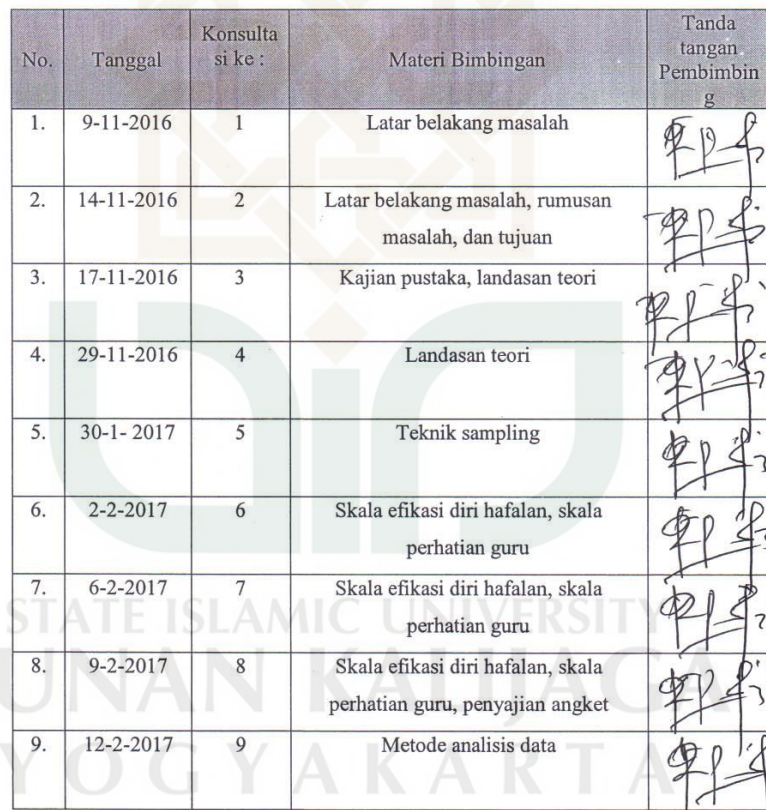 No. Tanggal Konsulta si ke : Materi Bimbingan Tanda tangan Pembimbin g
1. 9-11-2016 1 Latar belakang masalah
2. 14-11-2016 2 Latar belakang masalah, rumusan
masalah, dan tujuan
3. 17-11-2016 3 Kajian pustaka, landasan teori
4. 29-11-2016 4 Landasan teori
5. 30-1- 2017 5 Teknik sampling
6. 2-2-2017 6 Skala efikasi diri hafalan, skala
perhatian guru
7. 6-2-2017 7 Skala efikasi diri hafalan, skala
perhatian guru
8. 9-2-2017 8 Skala efikasi diri hafalan, skala
perhatian guru, penyajian angket
9. 12-2-2017 9 Metode analisis data
STATE ISLAMIC UNIVERSITY
SUNAN KALIJAGA
YOGYAKARTA